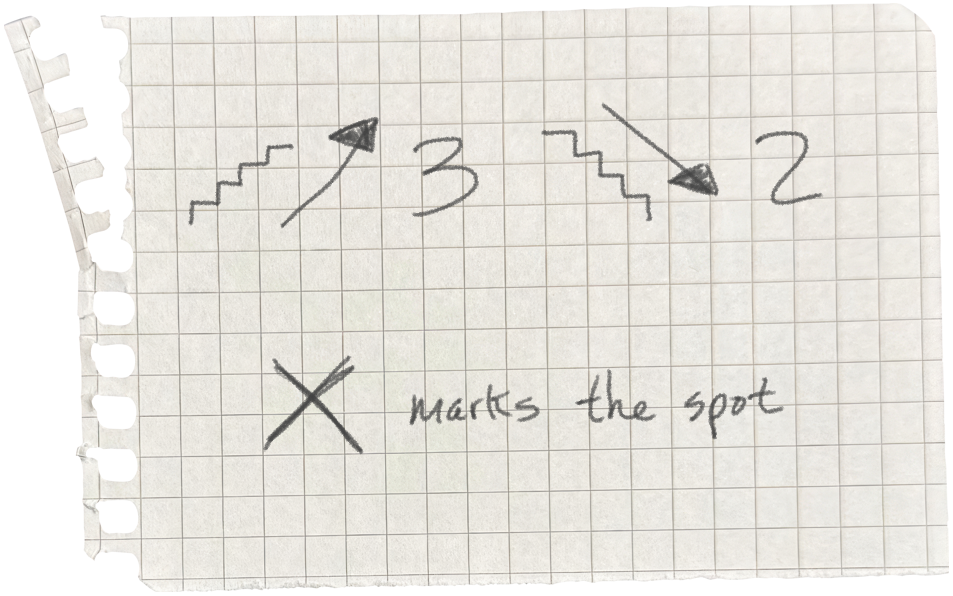 3 2
X marks the spot